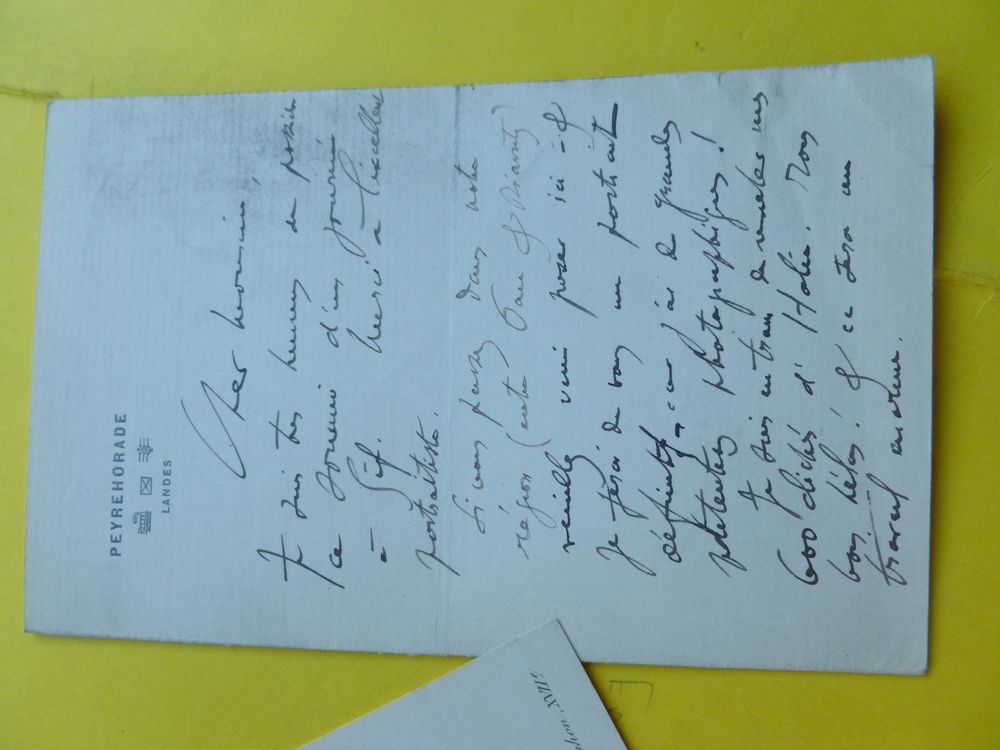 PEYREHORADE
LANDES
Cher monsieur
Je suis très heureux de posséder
ce souvenir d'une journée
à Gif. Merci à l'excellent
portraitiste.
Si vous passez dans notre
région (entre Pau & Biarritz)
veuillez venir poser ici &
je ferai de vous un portrait
définitif car j'ai de grandes
prétentions photographiques!
Je suis en train de révéler mes
600 clichés d'Italie. Tous
bons hélas! & ce sera un
travail énorme.
phon. XVII e